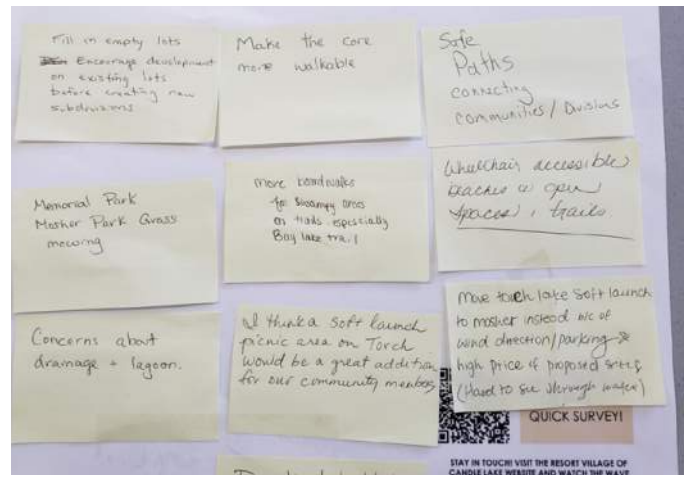 Fill in empty lots
Encourage development
on existing lots
before creating new
subdivisions
Make the core
more walkable
Safe
Paths
connecting
communities / Divisions
Memorial Park
Mosher Park Grass
mowing
more boardwalks
for swampy areas
on trails especially
Bay lake trail
Wheelchair accessible
beaches w open
spaces, trails.
Concerns about
drainage + lagoon.
I think a soft launch
picnic area on Torch
would be a great addition
for our community members
Move torch lake soft launch
to mosher instead b/c of
wind direction/parking &
high price of proposed
(Hard to see through water)
QUICK SURVEY!
STAY IN TOUCH! VISIT THE RESORT VILLAGE OF
CANDLE LAKE WEBSITE AND WATCH THE WAVE